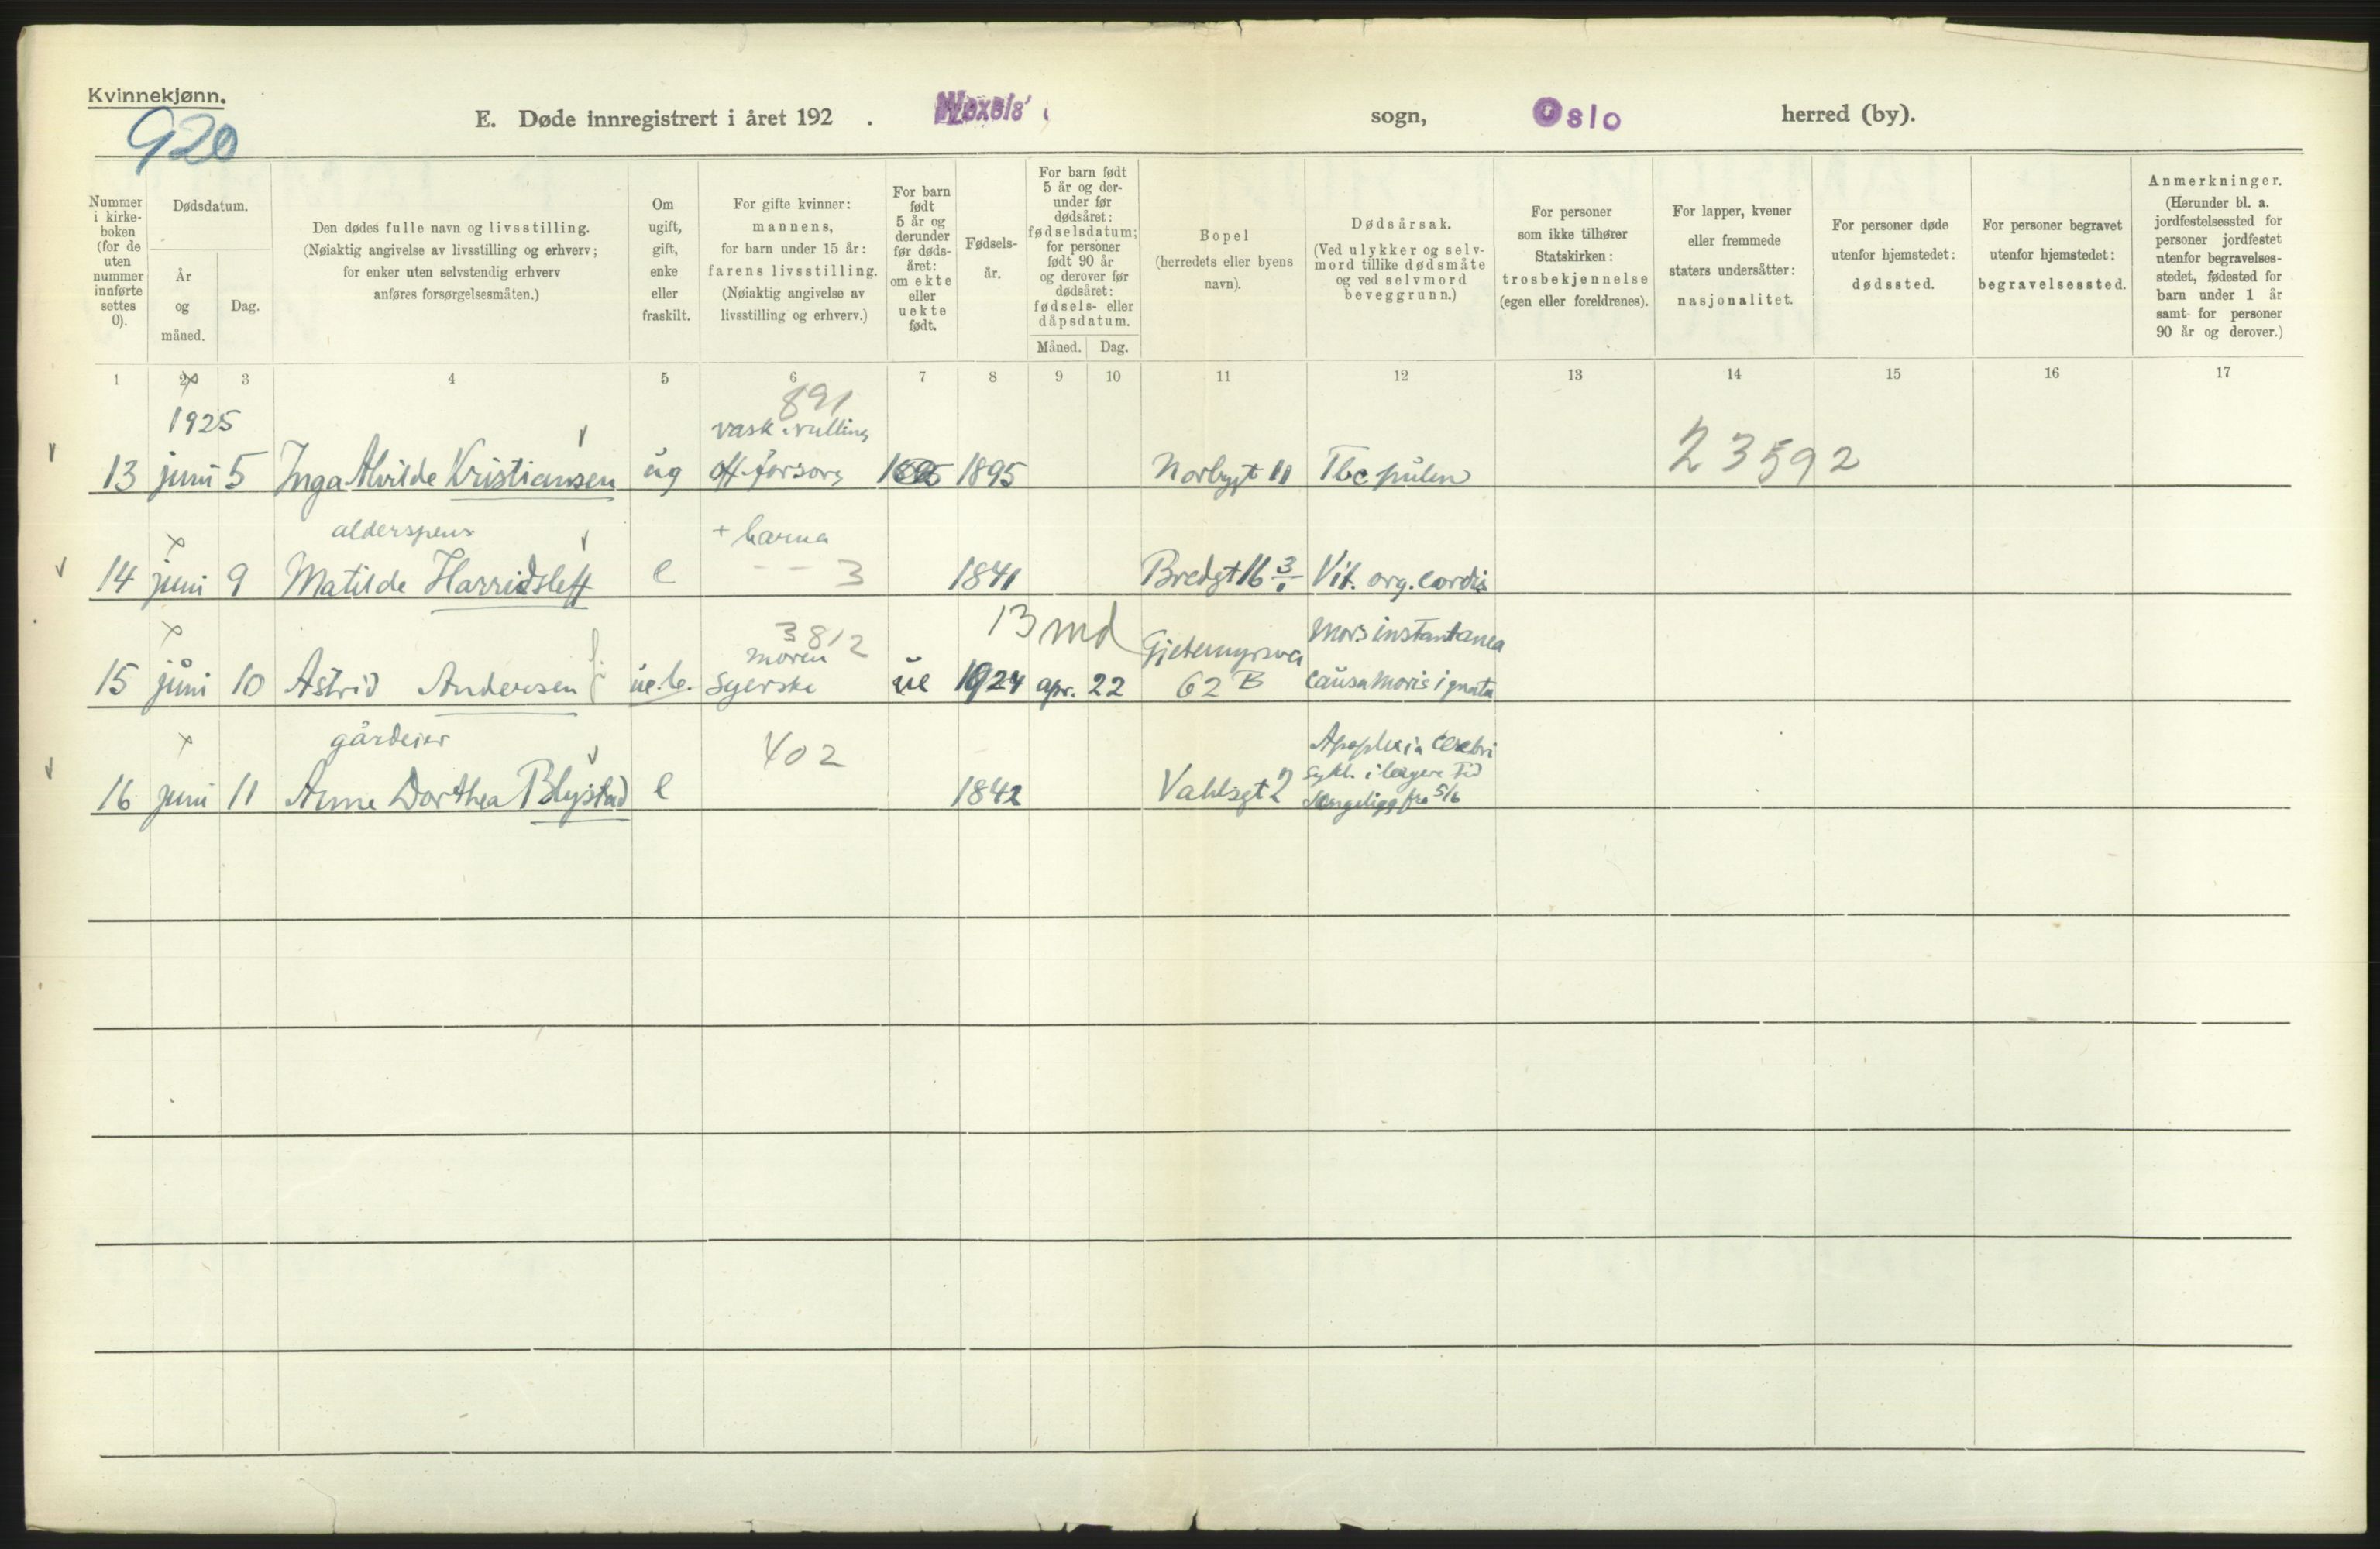 Kvinnekjønn.
920
E. Døde innregistrert i året 192 . Wexels' sogn, Oslo herred (by).
Nummer i kirke-boken (for de uten nummer innførte settes 0).
Dødsdatum.
År og måned.
Dag.
Den dødes fulle navn og livsstilling.
(Nøiaktig angivelse av livsstilling og erhverv;
for enker uten selvstendig erhverv
anføres forsørgelsesmåten.)
Om
ugift,
gift,
enke
eller
fraskilt.
For gifte kvinner:
mannens,
for barn under 15 år:
farens livsstilling.
(Nøiaktig angivelse av
livsstilling og erhverv.)
For barn
født
5 år og
derunder
før døds-
året:
om ekte
eller
uekte
født.
Fødsels-
år.
For barn født
5 år og der-
under før
dødsåret:
fødselsdatum;
for personer
født 90 år
og derover før
dødsåret:
fødsels- eller
dåpsdatum.
Måned. Dag.
Bopel
(herredets eller byens
navn).
Dødsårsak.
(Ved ulykker og selv-
mord tillike dødsmåte
og ved selvmord
beveggrunn.)
For personer
som ikke tilhører
Statskirken:
trosbekjennelse
(egen eller foreldrenes).
For lapper, kvener
eller fremmede
staters undersåtter:
nasjonalitet.
For personer døde
utenfor hjemstedet:
dødssted.
For personer begravet
utenfor hjemstedet:
begravelsessted.
Anmerkninger.
(Herunder bl. a.
jordfestelsessted for
personer jordfestet
utenfor begravelses-
stedet, fødested for
barn under 1 år
samt for personer
90 år og derover.)
1 2 3 4 5 6 7 8 9 10 11 12 13 14 15 16 17
1925
891
vask. rulling
13 juni 5 Inga Alvilde Kristiansen ug off. forsorg 1895 Norbygt 11 Tbc pulm 23592
alderspens + barna
14 juni 9 Matilde Harridsleff e - - 3 1841 Bredgt 16 3/1 Vit. org. cordis
3812 13 md
moren Gjetemyrsvei Mors instantanea
15 juni 10 Astrid Andersen u.b. syerske ue 1924 apr. 22 62 B causa moris ignota
gårdeier 402 Apoplexia cerebri
sykl. i lengere Tid
16 juni 11 Anne Dorthea Blystad e 1842 Vahlsgt 2 sengeligg fra 5/6